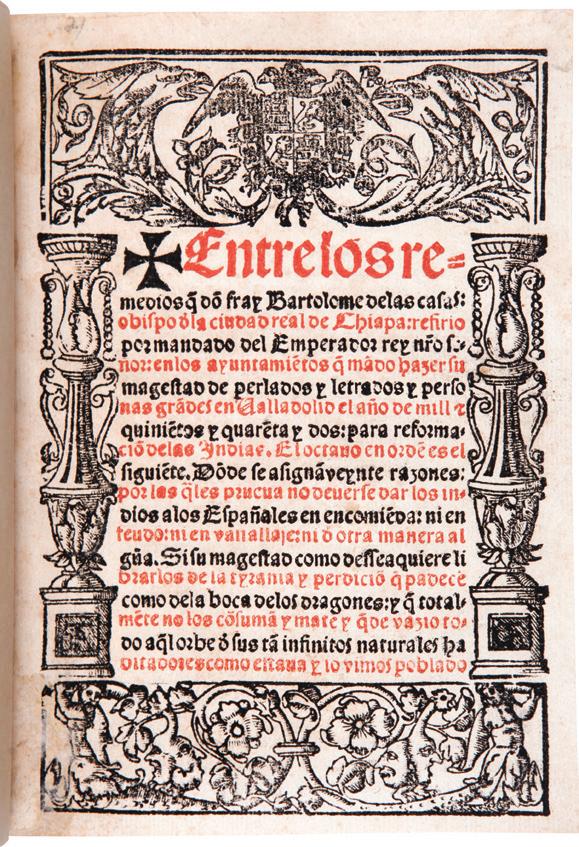 ✠Entre los re-
medios q̄ dō fray Bartolome delas casas:
obispo dͤla ciudad real de Chiapa: refirio
por mandado del Emperador rey nr̄o se-
ñor: en los ayuntamiētos q̄ mādo hazer su
magestad de perlados y letrados y perso
nas grādes en Ualladolid el año de mill ⁊
quiniētos y quarēta y dos: para reforma-
ciō de las Indias. El octauo en ordē es el
siguiēte. Dōde se asignā veynte razones:
por las q̄les prueua no deuerse dar los in-
dios a los Españales en encomiēda: ni en
feudo: ni en vassallaje: ni d̄ otra manera al
gūa. Si su magestad como dessea quiere li
brarlos de la tyrania y perdiciō q̄ padecē
como dela boca delos dragones: y q̄ total-
mēte no los cōsumā y matē y q̄de vazio to-
do aq̄l orbe d̄ sus tā infinitos naturales ha
bitadores como estaua y lo vimos poblado